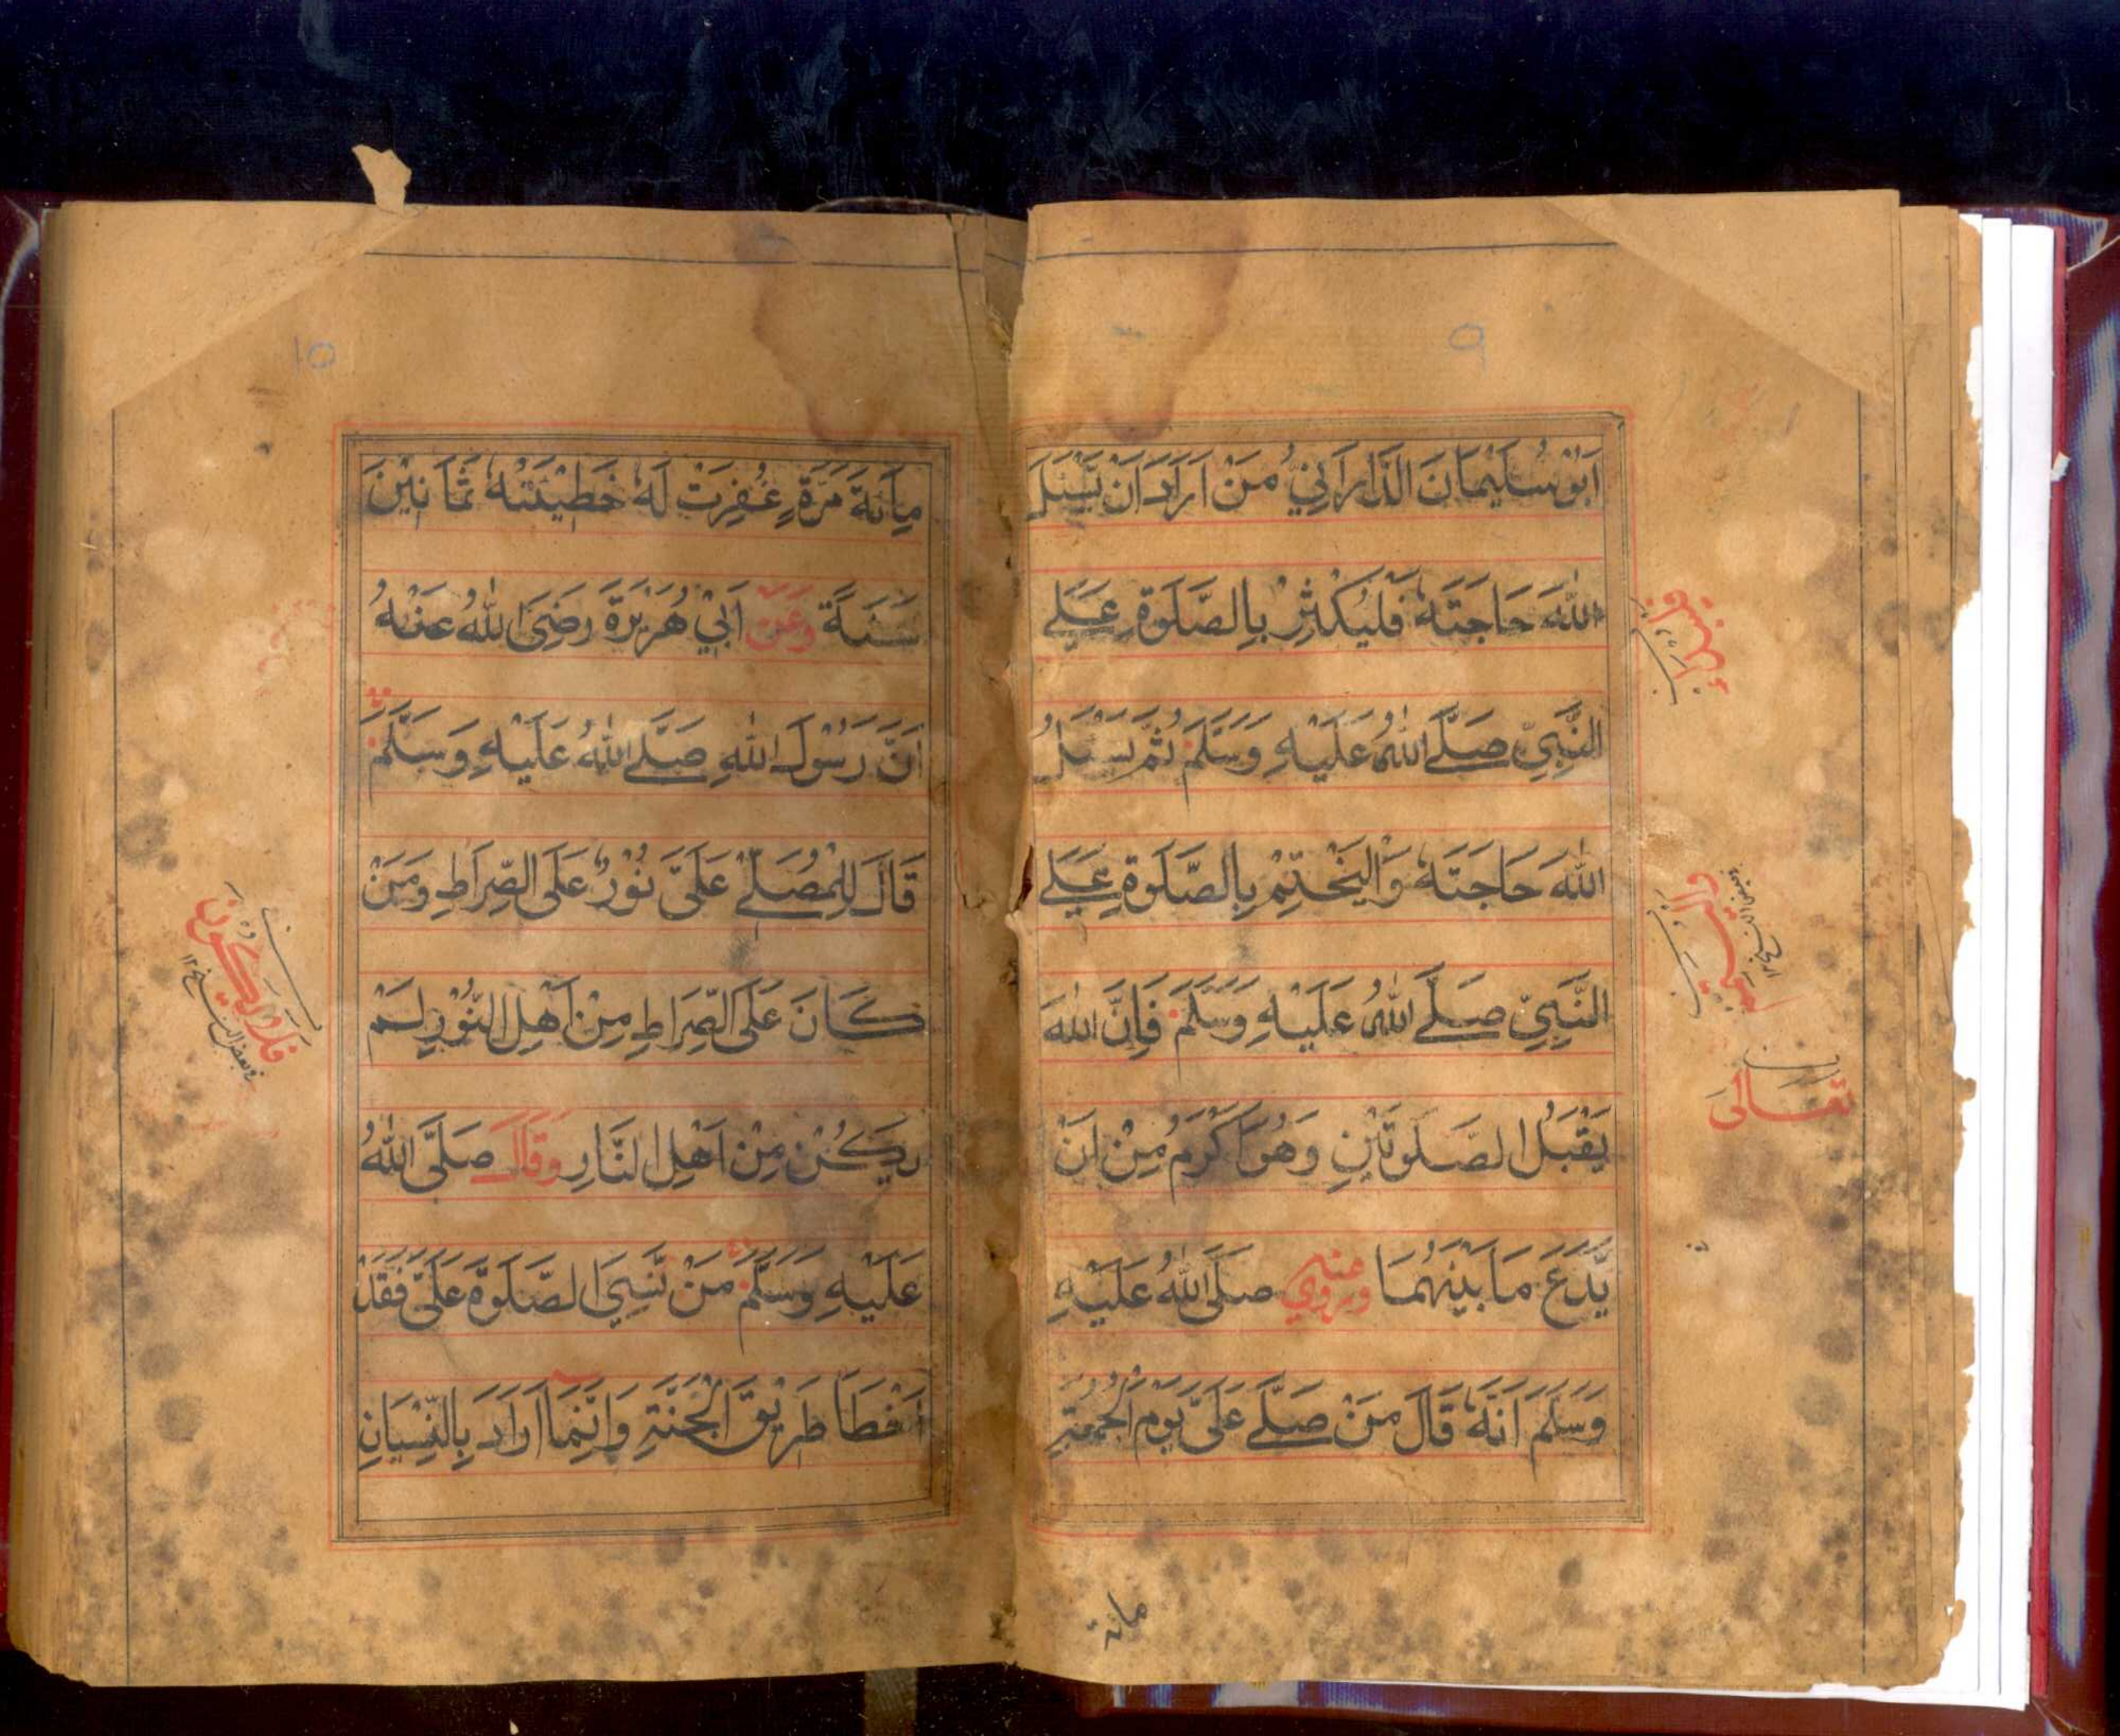 9
اَبُوْ سُلَيْمَانَ الدَّارَانِيُّ مَنْ اَرَادَ اَنْ يَّسْئَلَ
اللّٰهَ حَاجَتَهٗ فَلْيُكْثِرْ بِالصَّلٰوةِ عَلَے
النَّبِيِّ صَلَّے اللّٰهُ عَلَيْهِ وَسَلَّمَ ثُمَّ يَسْئَلُ
اللّٰهَ حَاجَتَهٗ وَالْيَخْتِمْ بِالصَّلٰوةِ عَلَے
النَّبِيِّ صَلَّے اللّٰهُ عَلَيْهِ وَسَلَّمَ فَاِنَّ اللّٰهَ
يَقْبَلُ الصَّلٰوتَيْنِ وَهُوَ اَكْرَمُ مِنْ اَنْ
يَّدَعَ مَا بَيْنَهُمَا وَرُوِيَ عَنْهُ صَلَّى اللّٰهُ عَلَيْهِ
وَسَلَّمَ اَنَّهٗ قَالَ مَنْ صَلَّے عَلَيَّ يَوْمَ الْجُمُعَةِ
تعَالَى
مائة
10
مِائَةَ مَرَّةٍ غُفِرَتْ لَهٗ خَطِيْئَتُهٗ ثَمَانِيْنَ
سَنَةً وَعَنْ اَبِيْ هُرَيْرَةَ رَضِيَ اللّٰهُ عَنْهُ
اَنَّ رَسُوْلَ اللّٰهِ صَلَّے اللّٰهُ عَلَيْهِ وَسَلَّمَ
قَالَ لِلْمُصَلِّے عَلَيَّ نُوْرٌ عَلَى الصِّرَاطِ وَمَنْ
كَانَ عَلَى الصِّرَاطِ مِنْ اَهْلِ النُّوْرِ لَمْ
يَكُنْ مِنْ اَهْلِ النَّارِ وَقَالَ صَلَّى اللّٰهُ
عَلَيْهِ وَسَلَّمَ مَنْ نَّسِيَ الصَّلٰوةَ عَلَيَّ فَقَدْ
اَخْطَاَ طَرِيْقَ الْجَنَّةِ وَاِنَّمَا اَرَادَ بِالنِّسْيَانِ